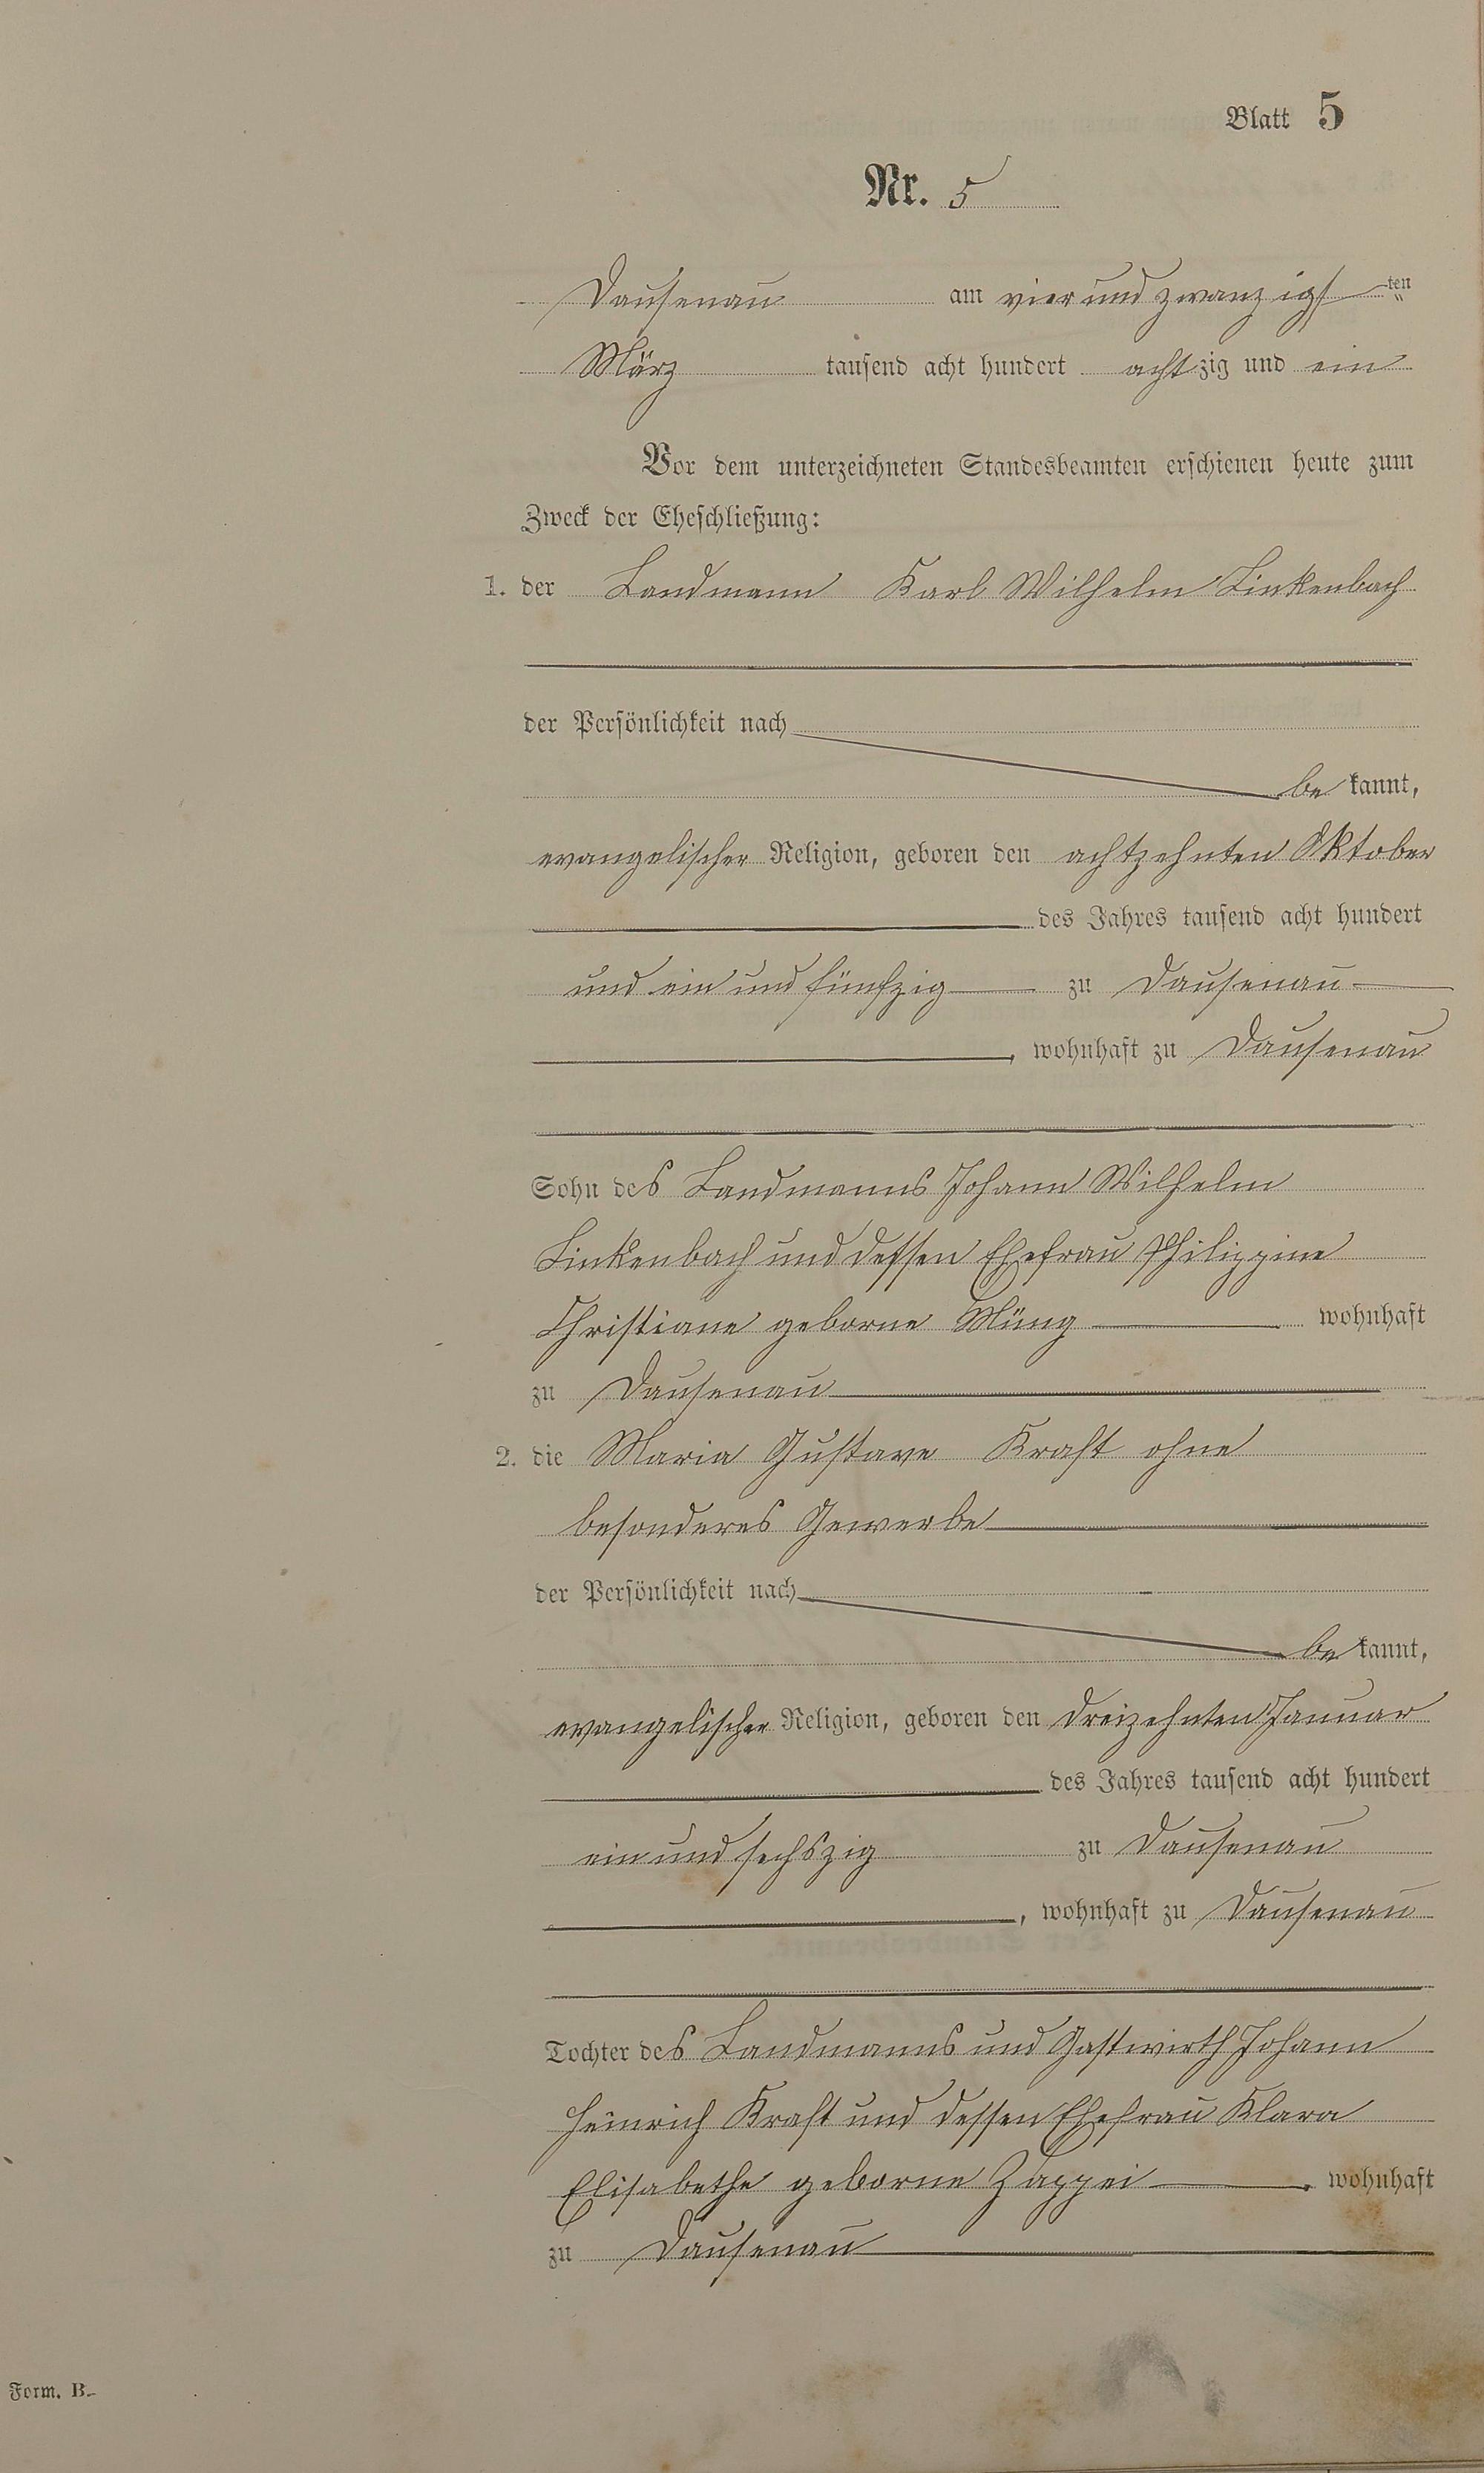 Blatt 5
Nr. 5
Dausenau am vierundzwanzigsten
März tausend acht hundert achtzig und ein
Vor dem unterzeichneten Standesbeamten erschienen heute zum
Zweck der Eheschließung:
1. der Landmann Karl Wilhelm Linkenbach
der Persönlichkeit nach
be kannt,
evangelischer Religion, geboren den achtzehnten Oktober
des Jahres tausend acht hundert
und ein und fünfzig zu Dausenau
, wohnhaft zu Dausenau
Sohn des Landmanns Johann Wilhelm
Linkenbach und dessen Ehefrau Philippine
Christiane geborne wohnhaft
zu Dausenau
2. die Maria Gustave Kraft ohne
besonderes Gewerbe
der Persönlichkeit nach
be kannt,
evangelischer Religion, geboren den dreizehnten Januar
des Jahres tausend acht hundert
ein und sechszig zu Dausenau
, wohnhaft zu Dausenau
Tochter des Landmanns und Gastwirth Johann
Heinrich Kraft und dessen Ehefrau Klara
Elisabethe geborne Zappei wohnhaft
zu Dausenau
Form. B.